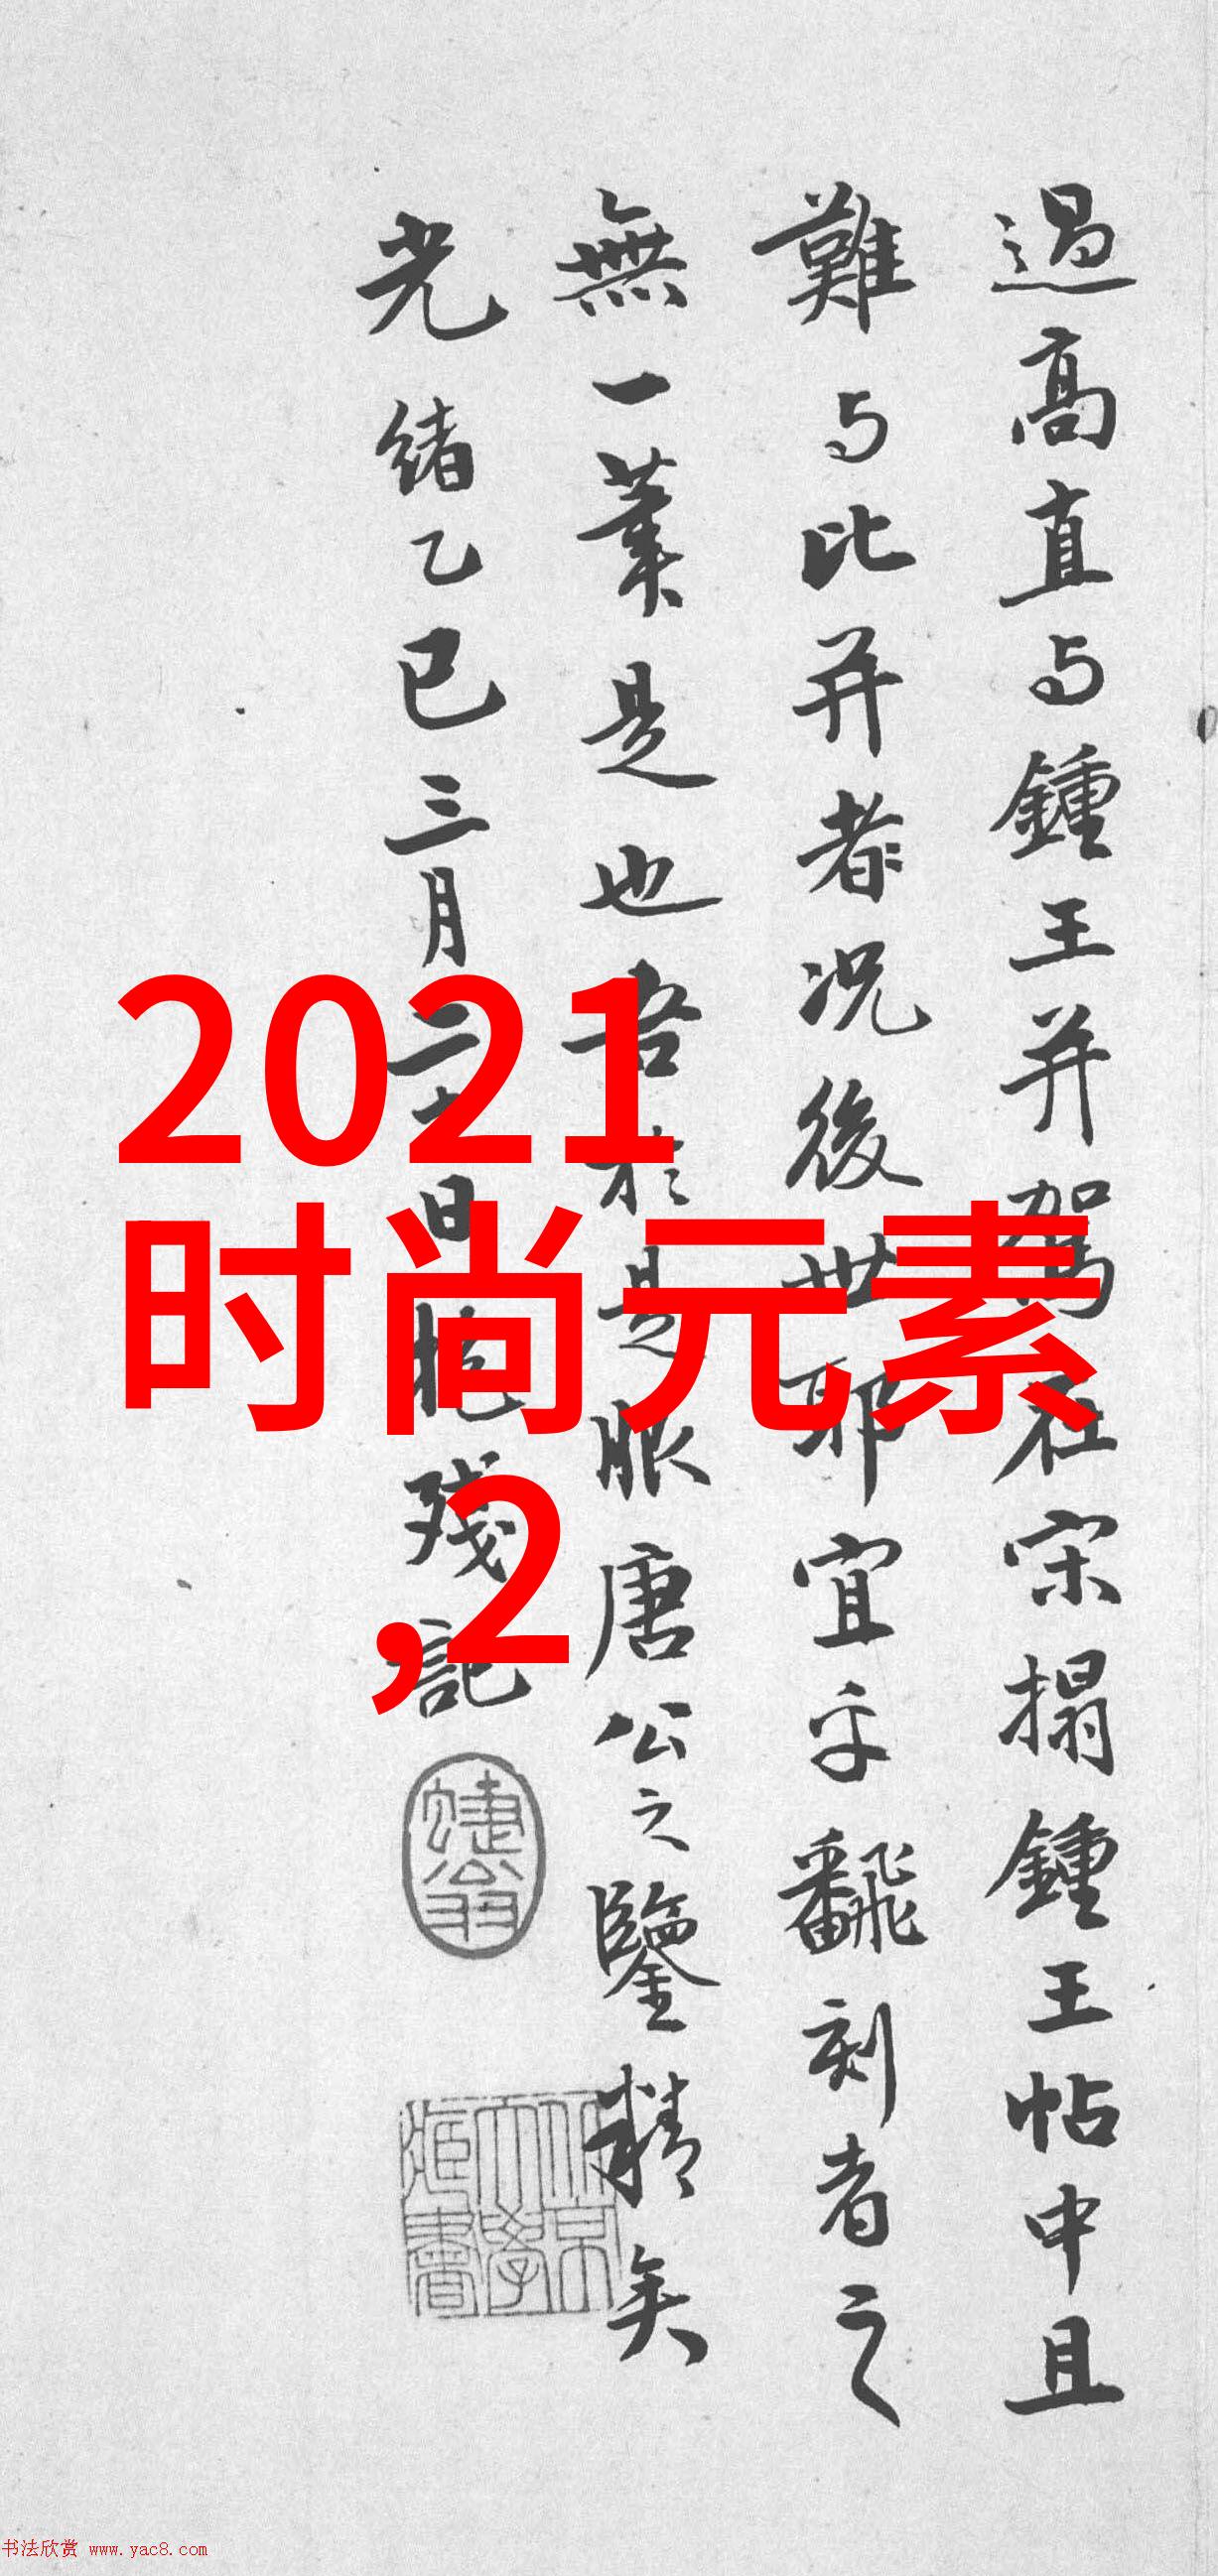 過高直与鍾王并駕在宋搨鍾王帖中且
難与比并者况後世耶宜乎翻刻者之
無一筆是也吾於是服唐公之鑒精矣
光緒乙巳三月二日 殘記
2021
时尚元素
,2
书法欣赏 www.yac8.com